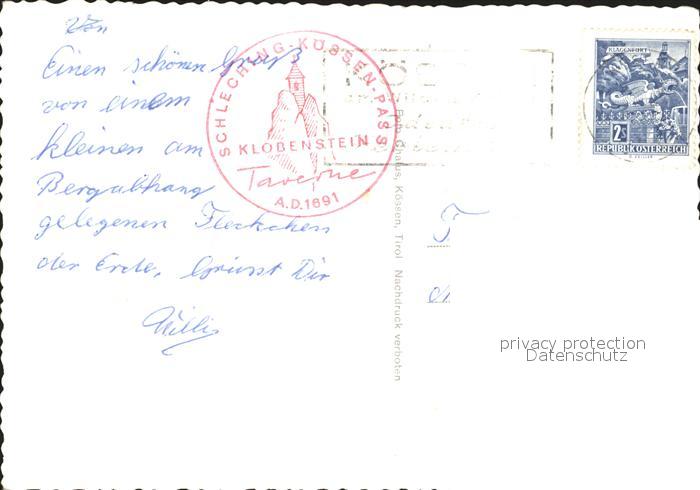 Von
Einen schönen Gruß
von einem
kleinen am
Bergabhang
gelegenen Fleckchen
der Erde, Grüsst Dir
Willi
SCHLECHING-KÖSSEN-PASS
KLOBENSTEIN
Taverne
A.D.1691
Kössen, Tirol Nachdruck verboten
KLAGENFURT
2S
REPUBLIK ÖSTERREICH
privacy protection
Datenschutz